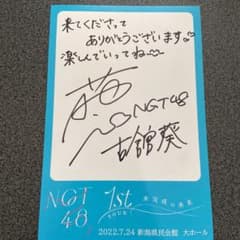 来てくださって
ありがとうございます♡
楽しんでいってね♡
葵
NGT48
古舘葵
NGT
48
1st
TOUR
2022.7.24 新潟県民会館 大ホール